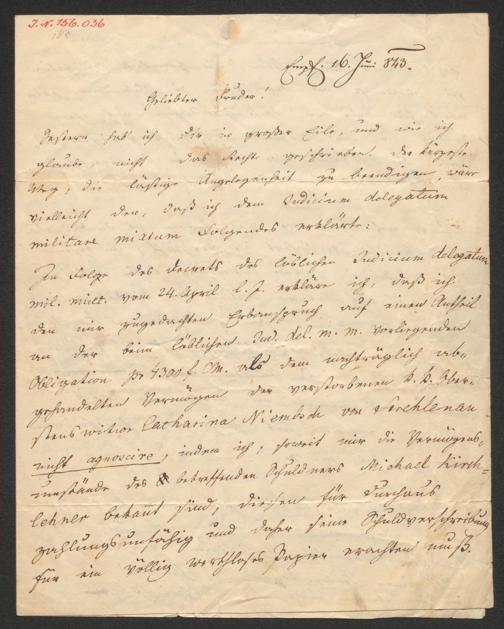 J. N. 156.036
Empf. 16. Juni 843.
Geliebter Bruder!
Gestern hab ich dir in großer Eile, und wie ich
glaube, nicht das Recht geschrieben. Der kürzeste
Weg, die lästige Angelegenheit zu beendigen, wäre
vielleicht der, daß ich dem Judicium delegatum
militare mixtum Folgendes erklärte:
In Folge des Decrets des löblichen Judicium delegatum
mil. mixt. vom 24. April l. J. erkläre ich, daß ich
den mir zugedachten Erbanspruch auf einen Antheil
an der beim löblichen Jud. del. m. m. vorliegenden
Obligation pr 4300 f. C. M. als dem nachträglich ab-
gehandelten Vermögen der verstorbenen k. k. Ober-
stenswitwe Catharina Niembsch von Strehlenau
nicht agnoscire, indem ich, soweit mir die Vermögens-
umstände des betreffenden Schuldners Michael Kirch-
lehner bekannt sind, diesen für durchaus
zahlungsunfähig und daher seine Schuldverschreibung
für ein völlig werthloses Papier erachten muß.